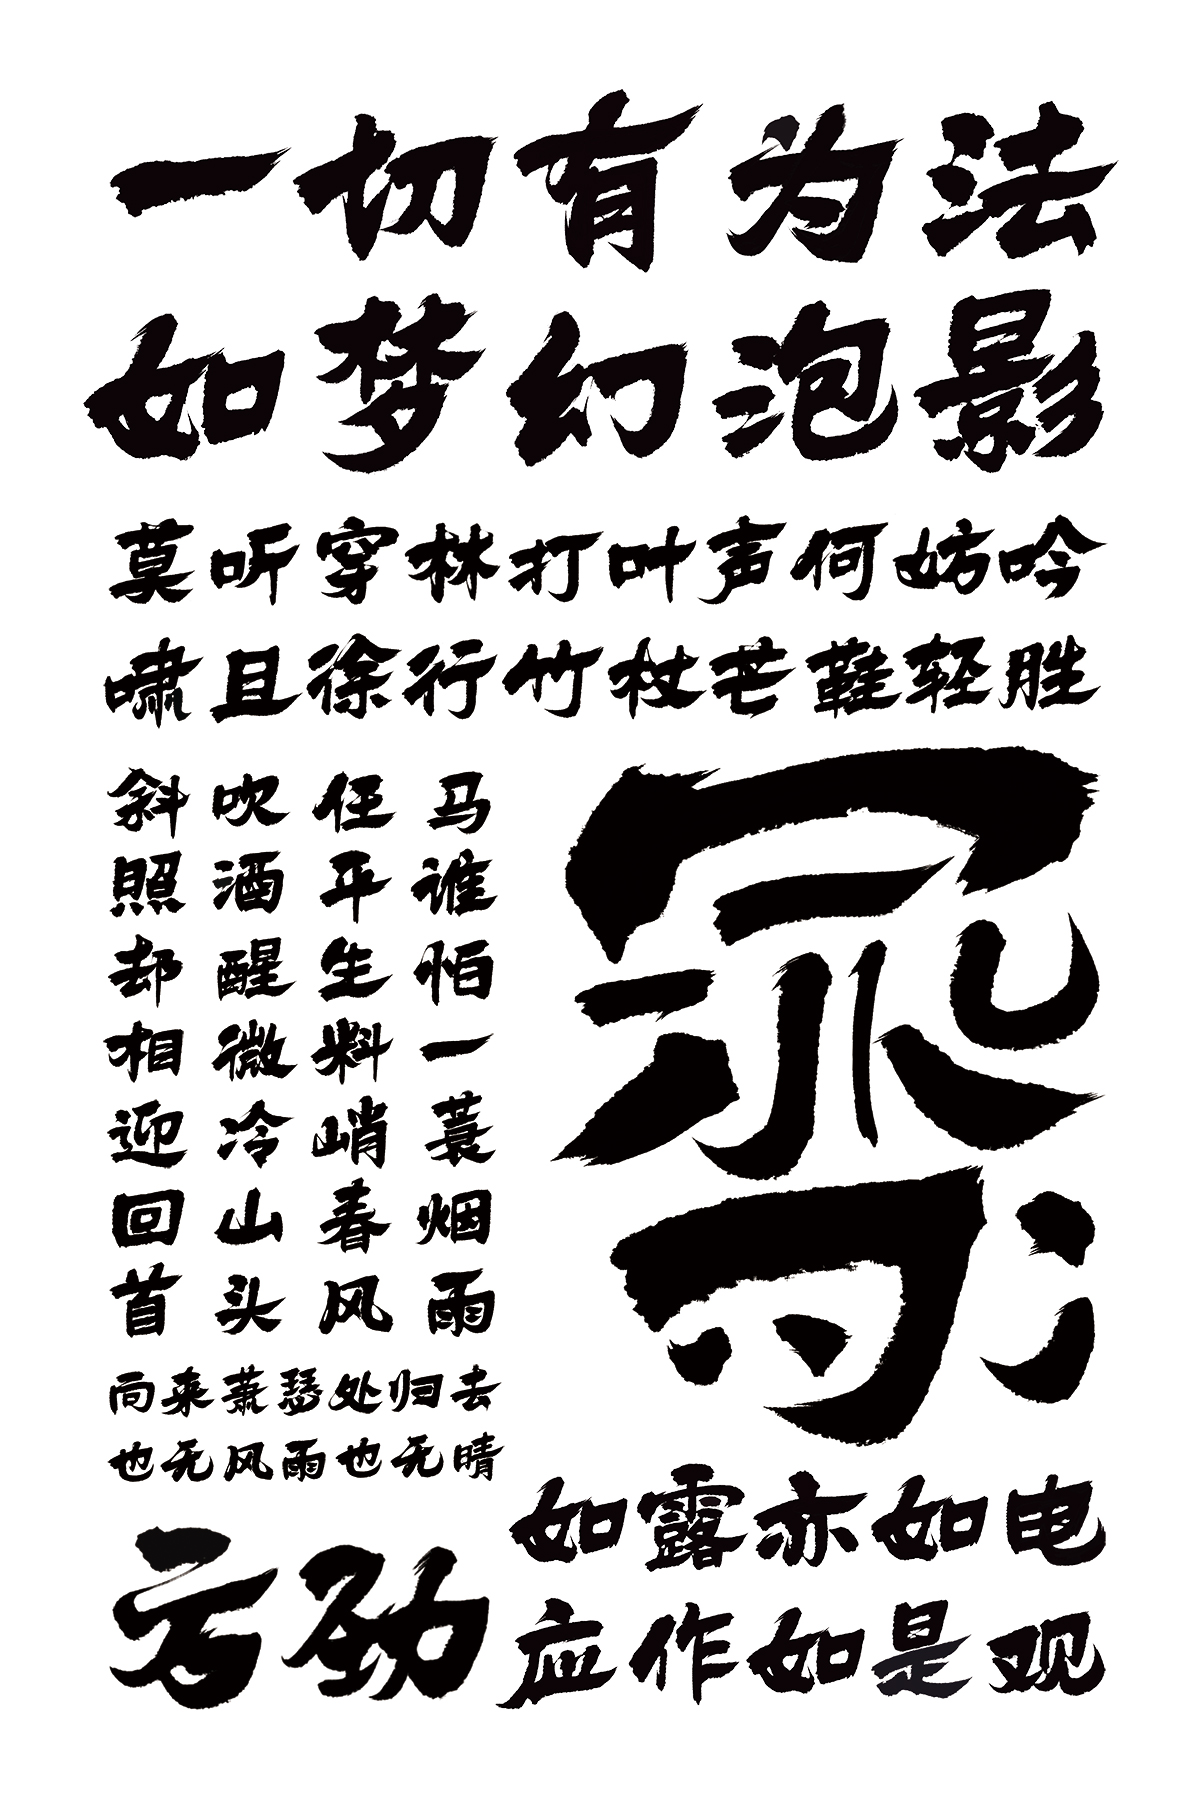 一切有为法
如梦幻泡影
莫听穿林打叶声何妨吟
啸且徐行竹杖芒鞋轻胜
马谁怕一蓑烟雨
任平生料峭春风
吹酒醒微冷山头
斜照却相迎回首
向来萧瑟处归去
也无风雨也无晴
方劲
如露亦如电
应作如是观